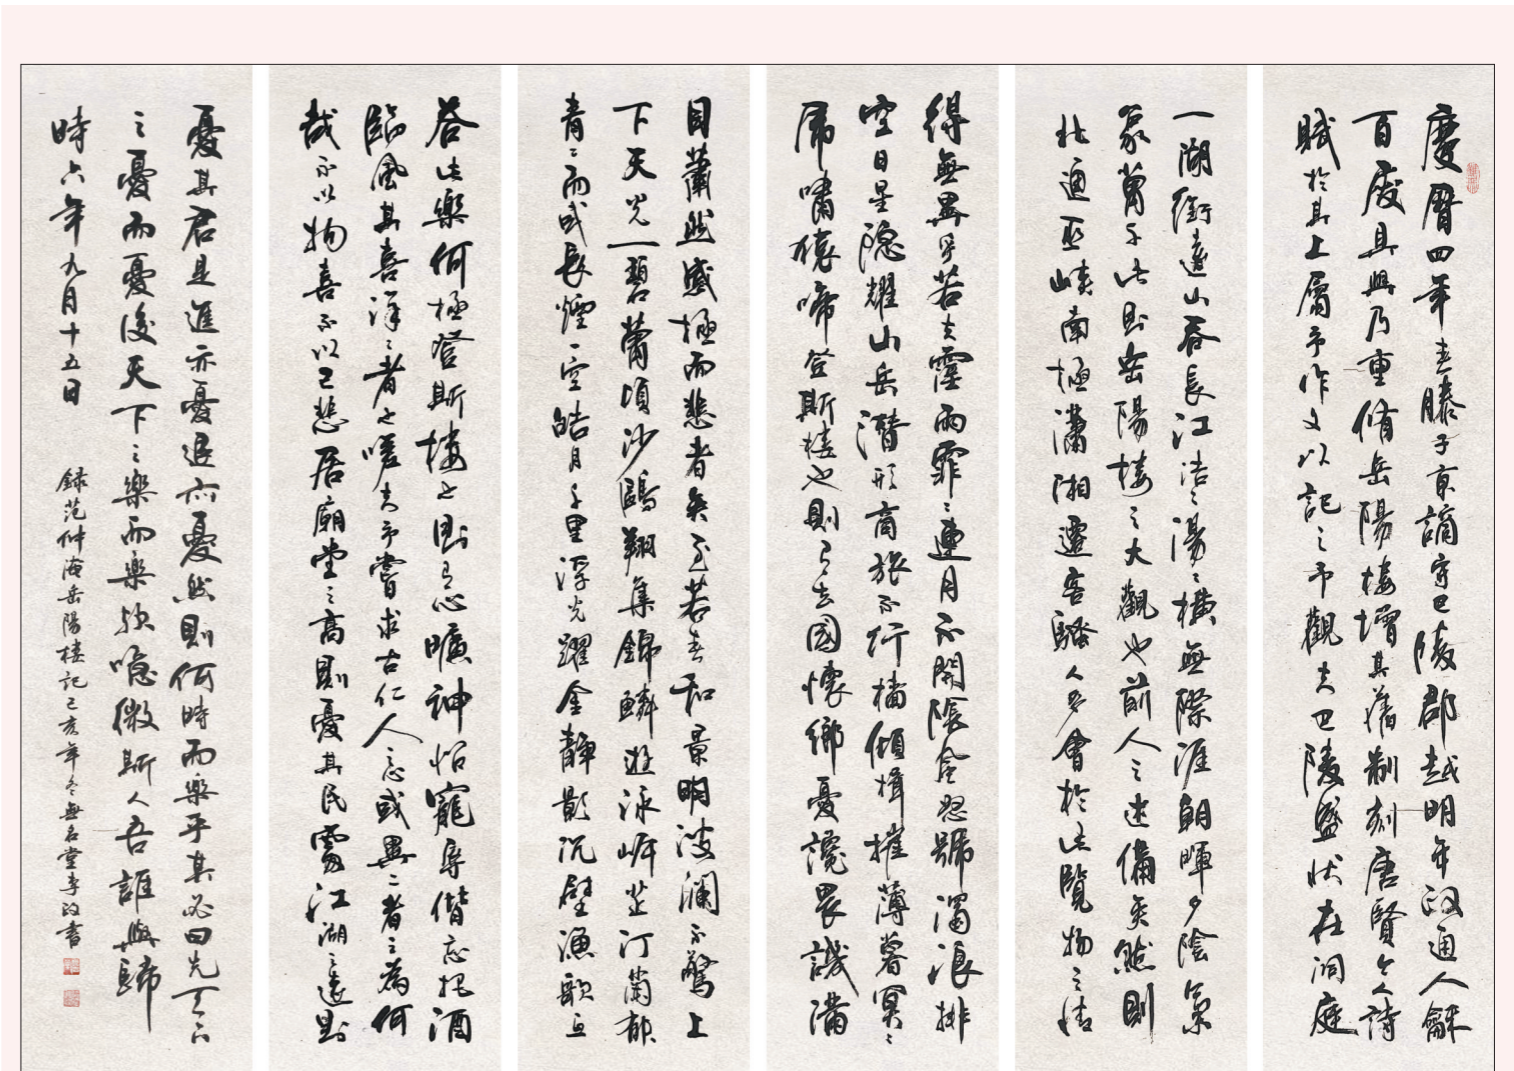 慶曆四年春滕子京謫守巴陵郡越明年政通人龢
百廢具興乃重脩岳陽樓增其舊制刻唐賢今人詩
賦於其上屬予作文以記之予觀夫巴陵盛狀在洞庭
一湖銜遠山吞長江浩〻湯〻橫無際涯朝暉夕陰氣
象萬千此則岳陽樓之大觀也前人之述備矣然則
北通巫峽南極瀟湘遷客騷人多會於此覽物之情
得無異乎若夫霪雨霏〻連月不開陰風怒號濁浪排
空日星隱耀山岳潛形商旅不行檣傾楫摧薄暮冥〻
虎嘯猿啼登斯樓也則有去國懷鄉憂讒畏譏滿
目蕭然感極而悲者矣至若春和景明波瀾不驚上
下天光一碧萬頃沙鷗翔集錦鱗遊泳岸芷汀蘭郁
青〻而或長煙一空皓月千里浮光躍金靜影沉璧漁歌互
答此樂何極登斯樓也則有心曠神怡寵辱偕忘把酒
臨風其喜洋〻者也嗟夫予嘗求古仁人之心或異二者之為何
哉不以物喜不以己悲居廟堂之高則憂其民處江湖之遠則
憂其君是進亦憂退亦憂然則何時而樂乎其必曰先天下
之憂而憂後天下之樂而樂歟噫微斯人吾誰與歸
時六年九月十五日
錄范仲淹岳陽樓記己亥年冬無名堂李政書